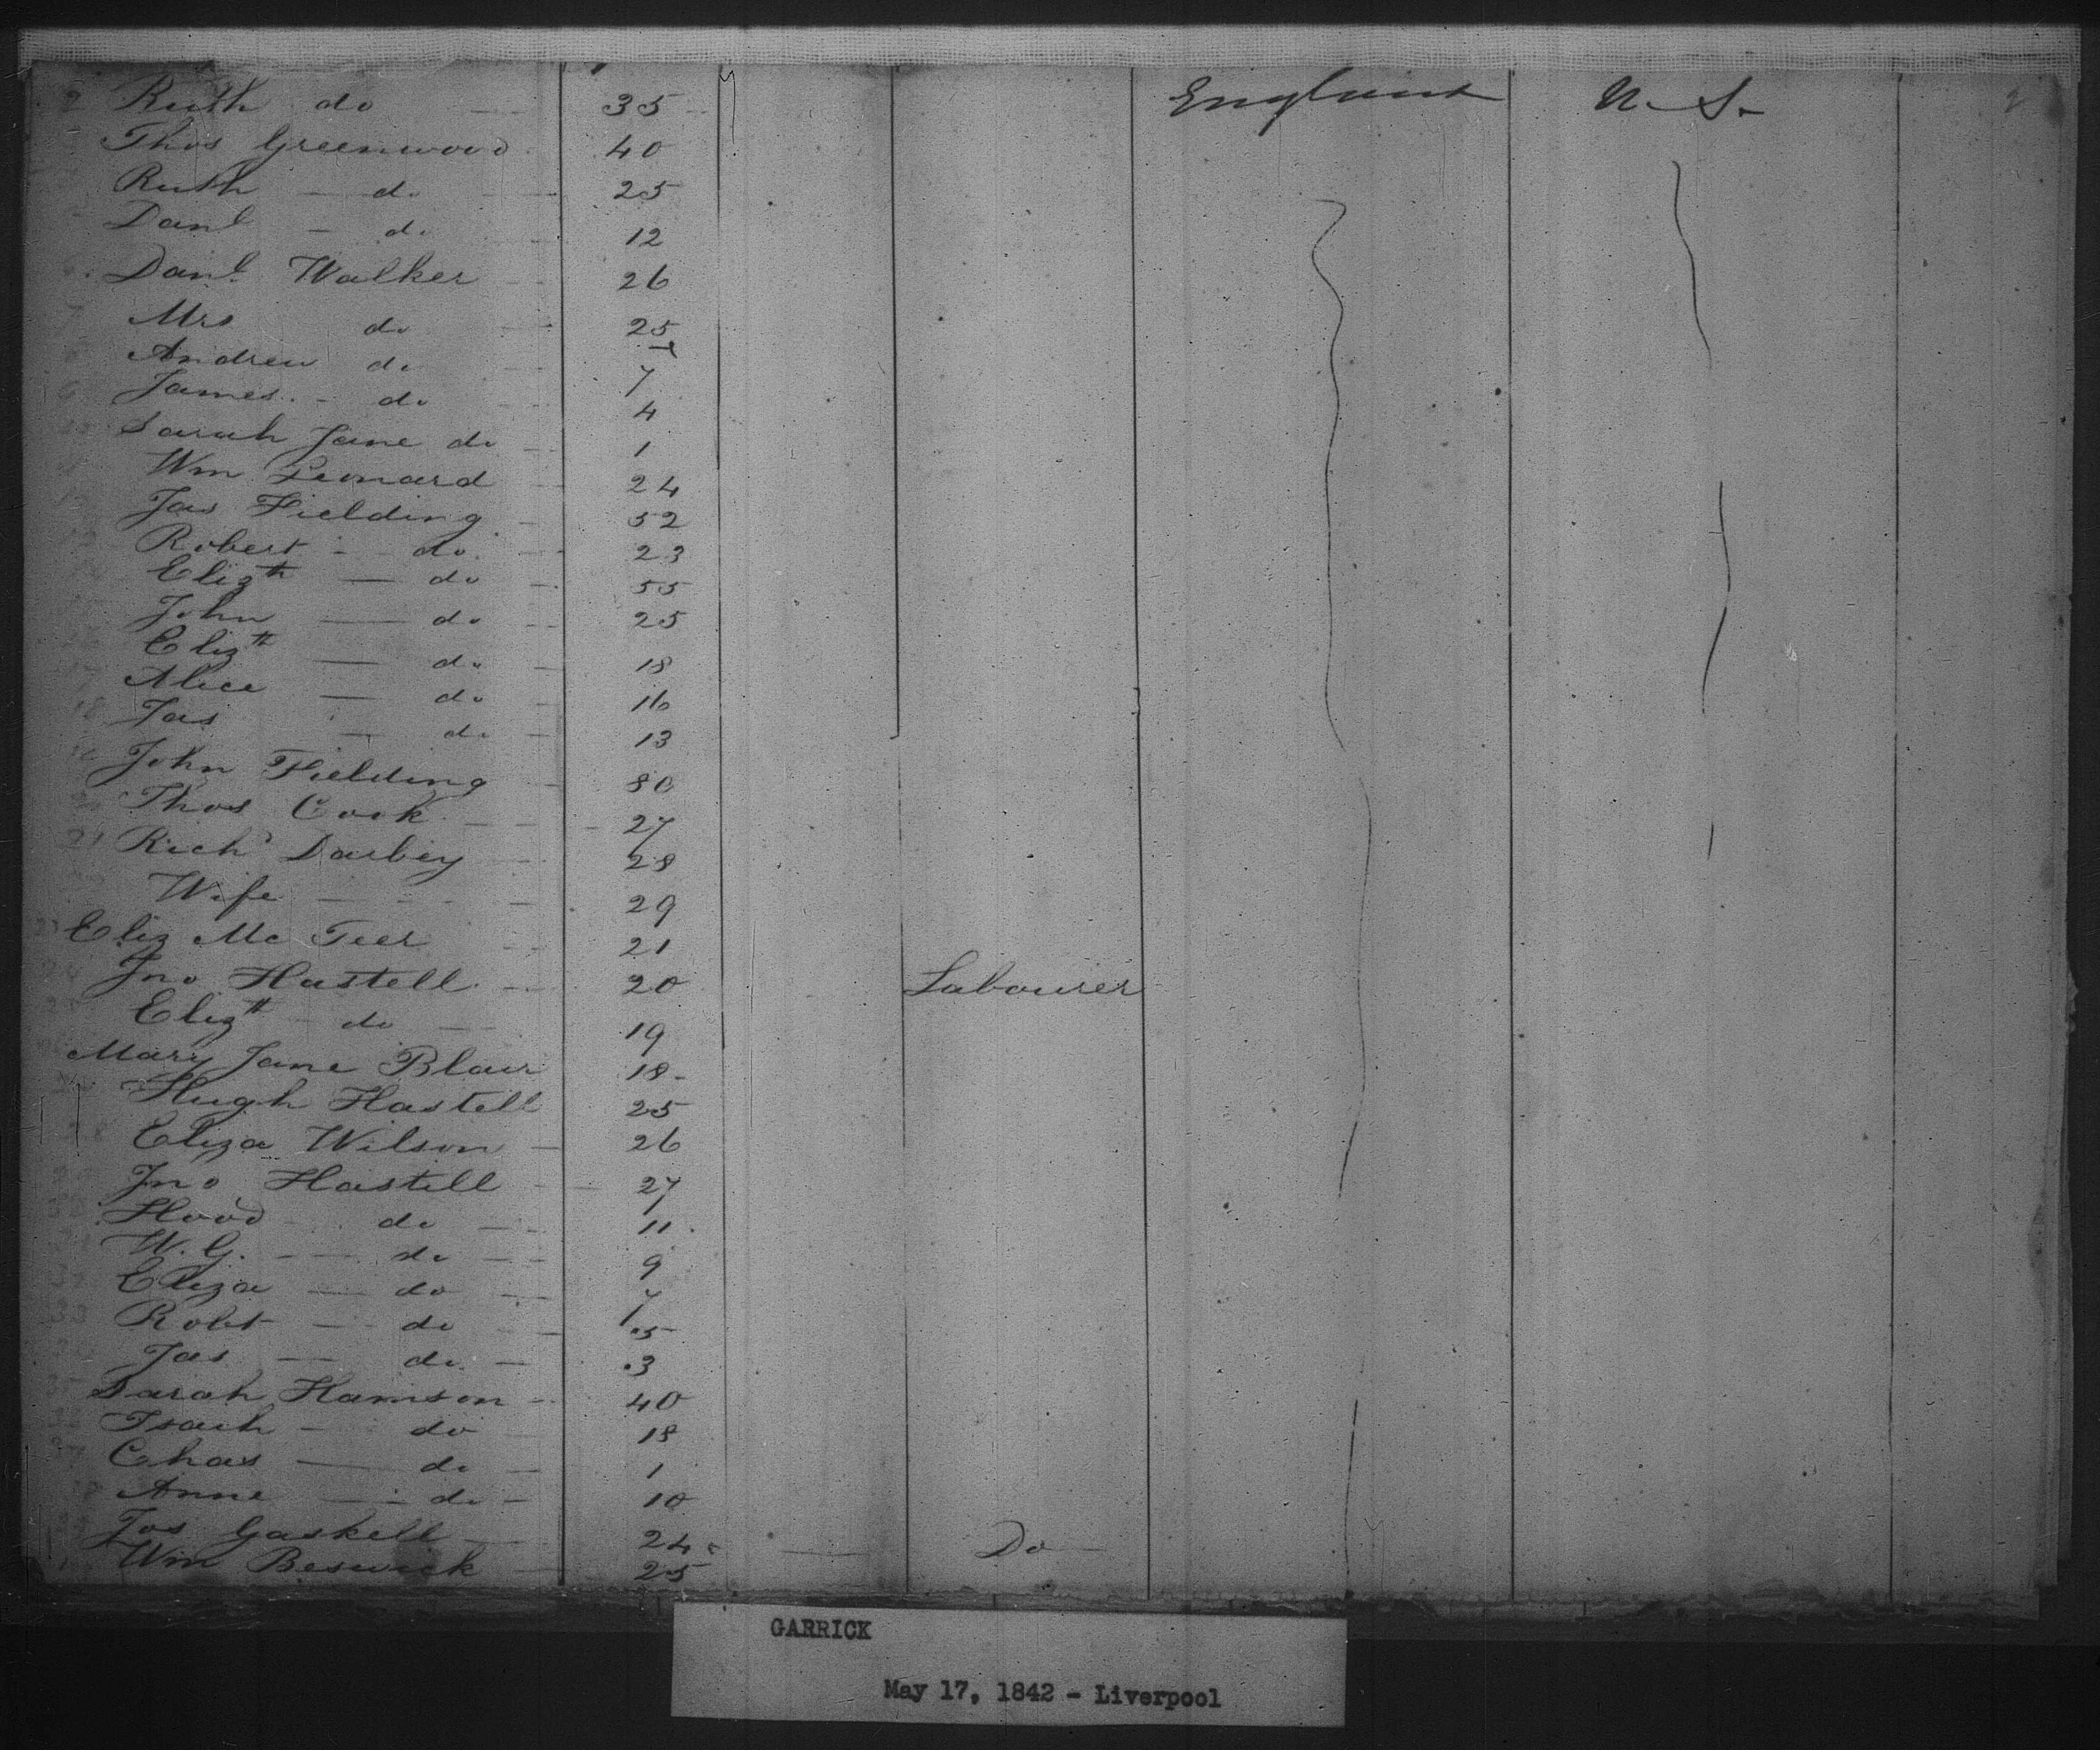 Ruth do 35 England U. S.
Thos Greenwood 40
Ruth do 25
Danl do 12
Danl Walker 26
Mrs do 25
Andrew do 7
James do 4
Sarah Jane do 1
Wm Leonard 24
Jas Fielding 52
Robert do 23
Elizth do 55
John do 25
Elizth do 18
Alice do 16
Jas do 13
John Fielding 80
Thos Cook 27
Richd Darbey 28
Wife 29
Eliz Mc Teer 21
Jno Hastell 20 Labourer
Elizth do 19
Mary Jane Blair 18
Hugh Hastell 25
Eliza Wilson 26
Jno Hastell 27
Hood do 11
W. G. do 9
Eliza do 7
Robt do 5
Jas do 3
Sarah 40
do 18
Chas do 1
Anne do 10
Jos Gaskell 24 Do
Wm Beswick 25
GARRICK
May 17, 1842 - Liverpool